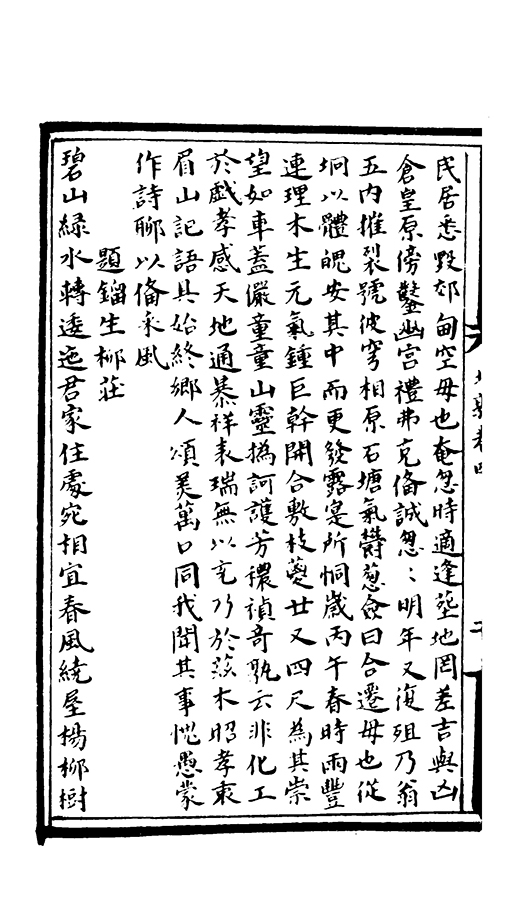 民居悉毀郊甸空母也奄忽時適逢塟地罔差吉與凶
倉皇原傍鑿幽宮禮弗克偹誠忽〻明年又復殂乃翁
五内摧裂號彼穹相原石塘氣欝葱僉曰合遷母也從
坰以體魄安其中而更發露寔所恫歲丙午春時雨豐
連理木生元氣鍾巨幹開合敷枝䕫廿又四尺為其崇
望如車蓋儼童童山靈撝訶護芳穠禎竒孰云非化工
於戯孝感天地通㬥祥表瑞無以充乃於茲木昭孝衷
眉山記語具始終鄉人頌美萬口同我聞其事愧愚蒙
作詩聊以偹采風
題鎦生柳莊
碧山緑水轉逶迤君家住處宛相宜春風繞屋楊柳樹